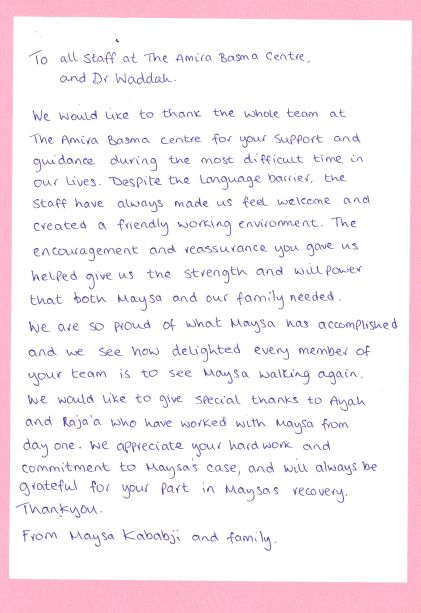 To all staff at The Amira Basma Centre,
and Dr Waddah.
We would like to thank the whole team at
The Amira Basma centre for your support and
guidance during the most difficult time in
our lives. Despite the language barrier, the
staff have always made us feel welcome and
created a friendly working environment. The
encouragement and reassurance you gave us
helped give us the strength and willpower
that both Maysa and our family needed.
We are so proud of what Maysa has accomplished
and we see how delighted every member of
your team is to see Maysa walking again.
We would like to give special thanks to Ayah
and Raja'a who have worked with Maysa from
day one. We appreciate your hardwork and
commitment to Maysa's case, and will always be
grateful for your part in Maysas recovery.
Thankyou.
From Maysa Kababji and family.